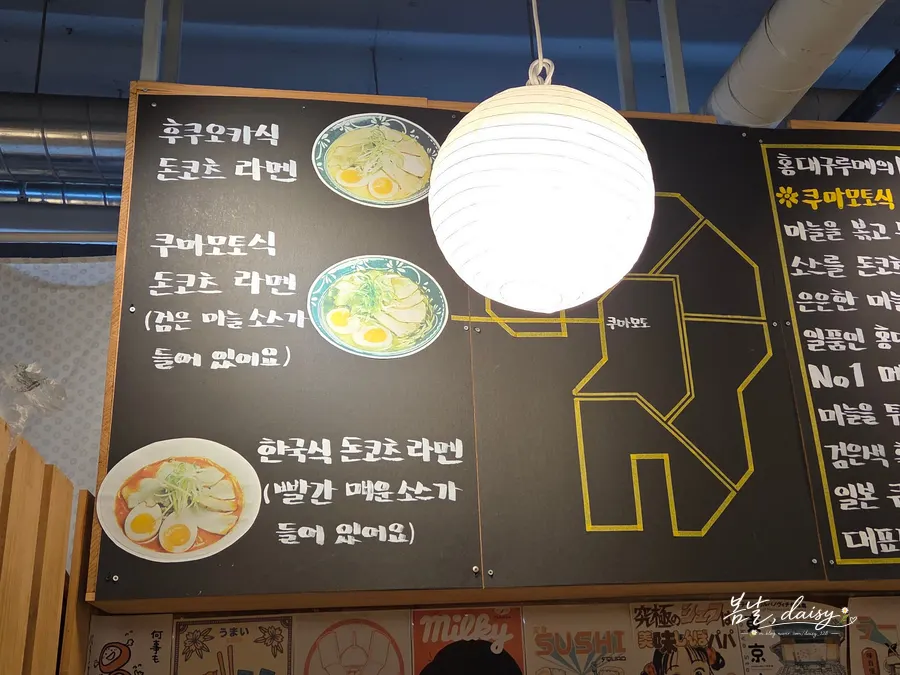 후쿠오카식
돈코츠 라멘
쿠마모토식
돈코츠 라멘
(검은 마늘 소스가
들어 있어요)
한국식 돈코츠 라멘
(빨간 매운소스가
들어 있어요)
쿠마모토
홍대구루메의
쿠마모토식
마늘을 볶고
소스를 돈코츠
은은한 마늘
일품인 홍대
No1 메
마늘을 튀
검은색
일본
대표
何事も
うまい
milky
SUSHI
究極の
美味
京
봄날, daisy